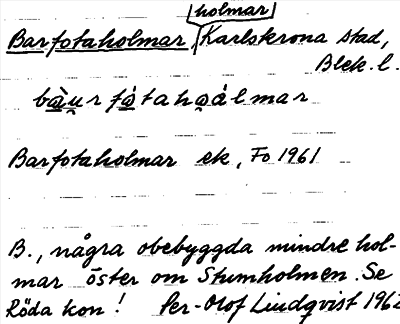 holmar
Barfotaholmar, Karlskrona stad,
Blek. l.
bàu̯r fátahǫálmar
Barfotaholmar ek, Fo 1961
B., några obebyggda mindre hol-
mar öster om Stumholmen. Se
Röda kon! Per-Olof Lindqvist 1962